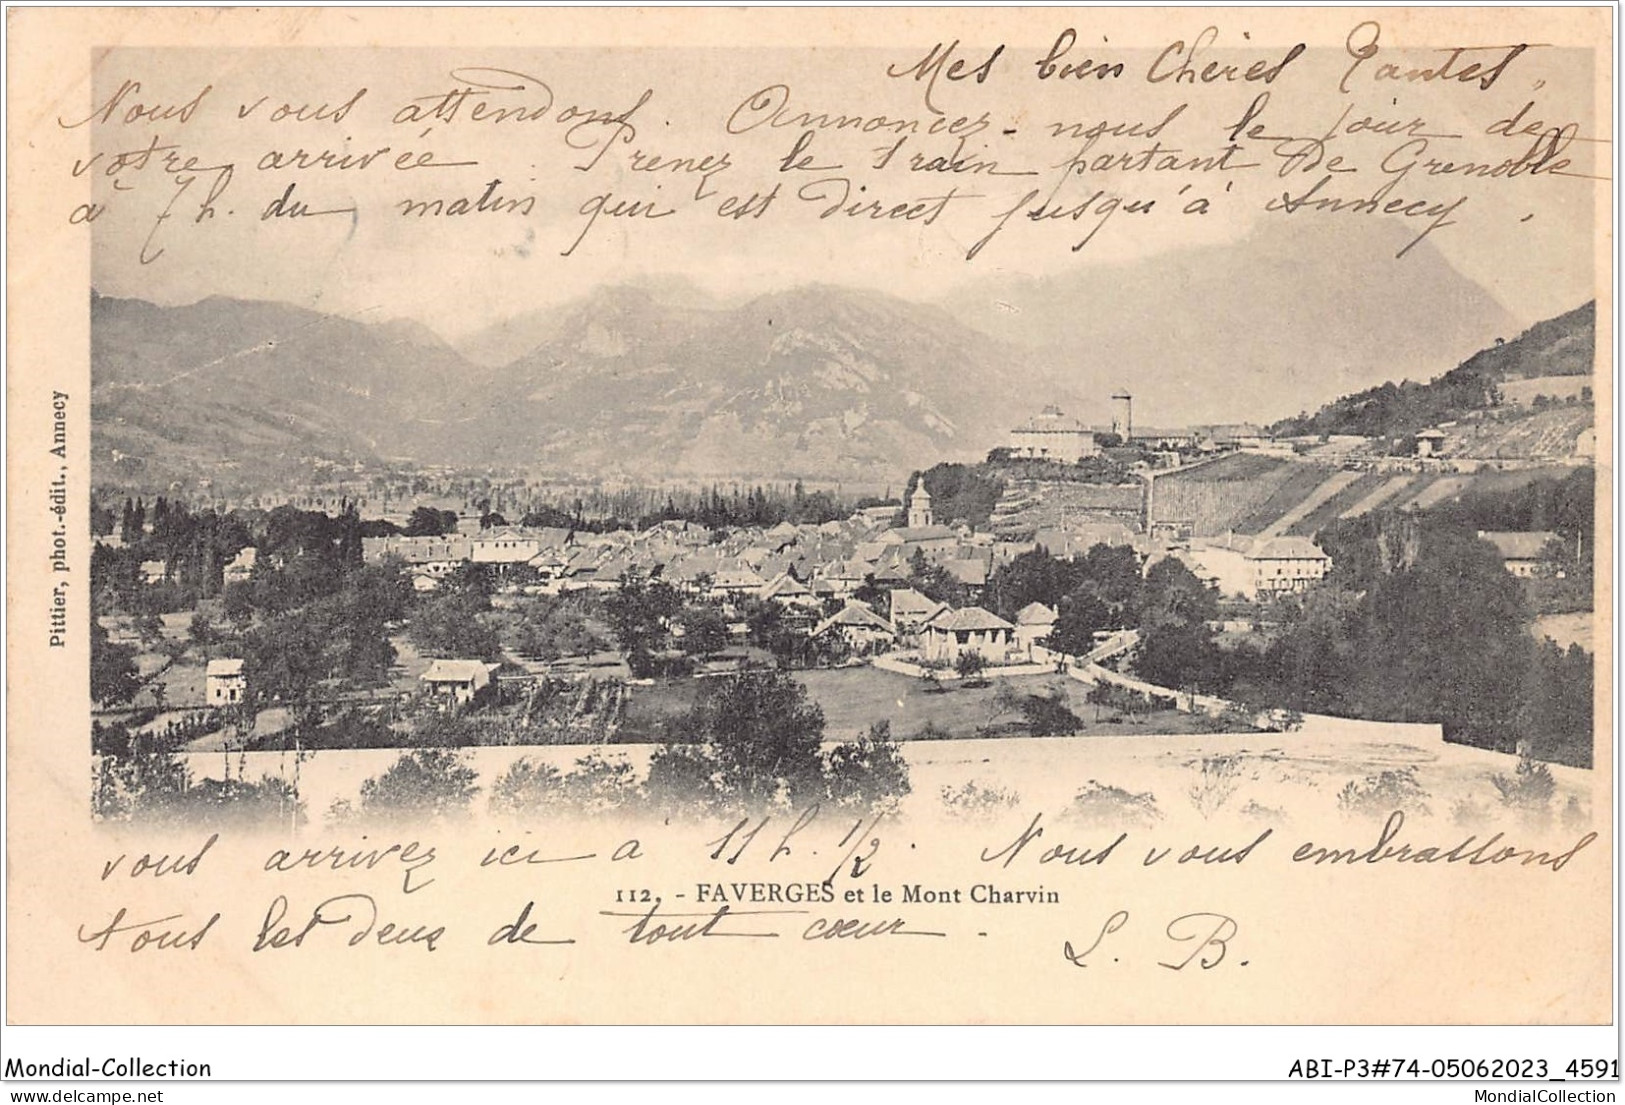 Mes bien Chères Tantes,
Nous vous attendons. Annoncez-nous le jour de
votre arrivée. Prenez le train partant de Grenoble
à 7 h. du matin qui est direct jusqu'à Annecy,
Pittier, phot.-édit., Annecy
vous arrivez ici à 11 h. 1/2. Nous vous embrassons
112. - FAVERGES et le Mont Charvin
tous les deux de tout cœur.
L. B.
Mondial-Collection
ABI-P3#74-05062023_4591
www.delcampe.net
MondialCollection